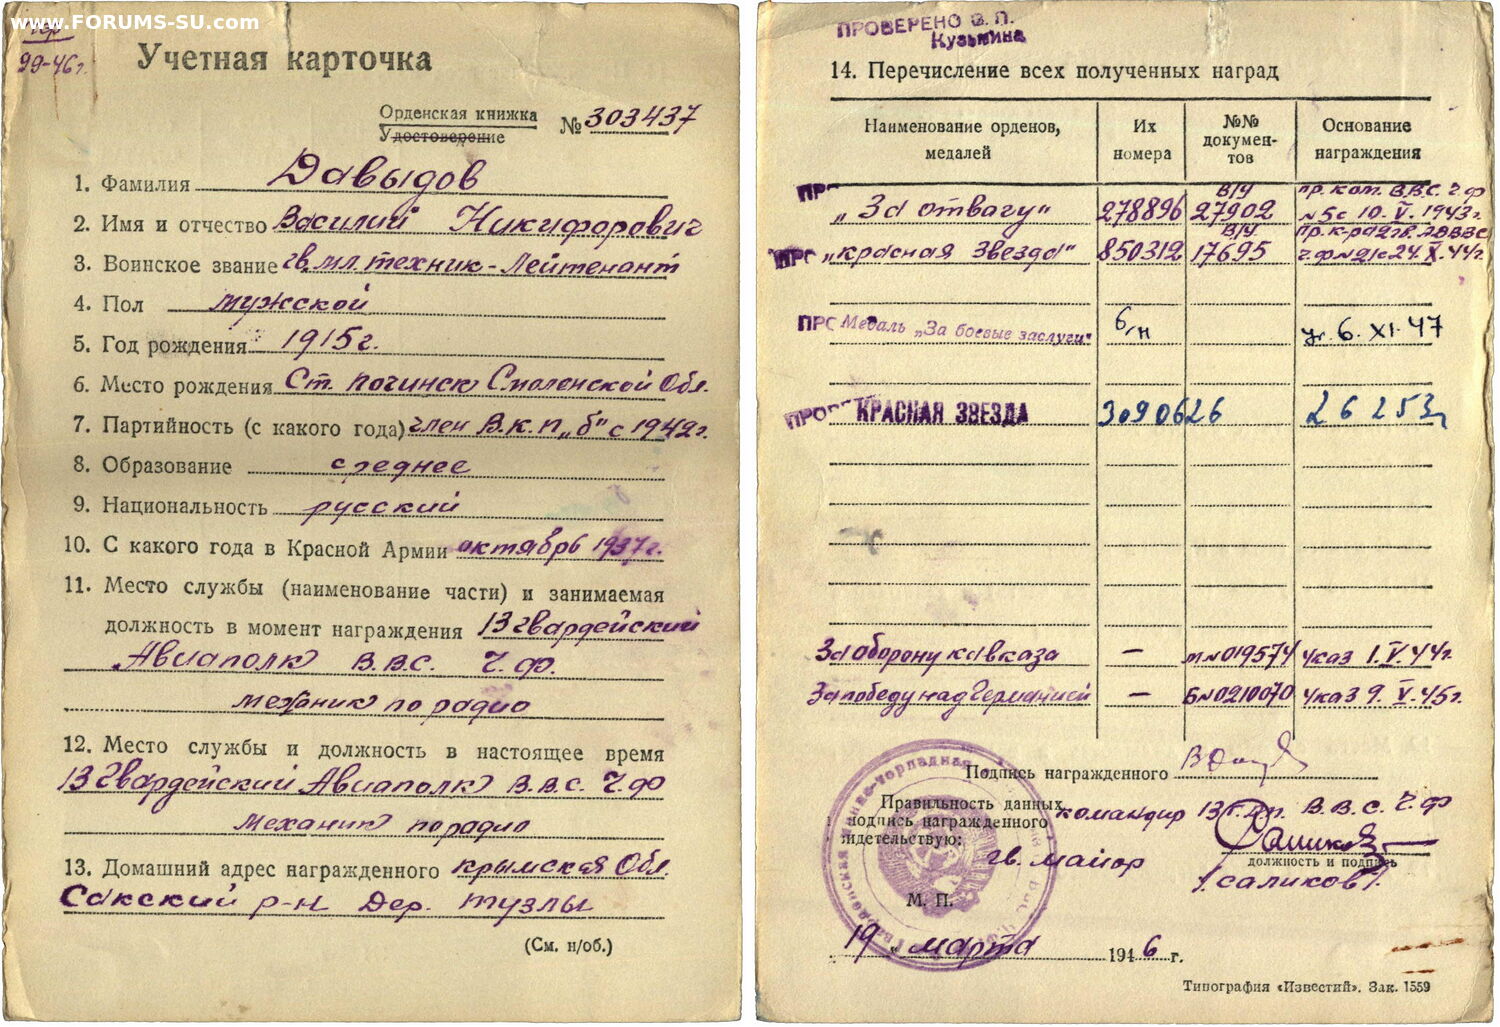 www.FORUMS-SU.com
99-46г.
Учетная карточка
Орденская книжка
Удостоверение
№ 303437
1. Фамилия Давыдов
2. Имя и отчество Василий Никифорович
3. Воинское звание гв. мл. техник-Лейтенант
4. Пол мужской
5. Год рождения 1915г.
6. Место рождения Ст. Починск Смоленской Обл.
7. Партийность (с какого года) член В.К.П. „б" с 1942г.
8. Образование среднее
9. Национальность русский
10. С какого года в Красной Армии октябрь 1937г.
11. Место службы (наименование части) и занимаемая
должность в момент награждения 13 гвардейский
Авиаполк В.В.С. Ч.Ф.
механик по радио
12. Место службы и должность в настоящее время
13 Гвардейский Авиаполк В.В.С. Ч.Ф
механик по радио
13. Домашний адрес награжденного крымская Обл.
Сакский р-н дер. Тузлы
(См. н/об.)
ПРОВЕРЕНО
Кузьмина
14. Перечисление всех полученных наград
Наименование орденов, медалей
Их номера
№№ документов
Основание награждения
„За отвагу" 278896 В/Ч 27902 пр. ком. В.В.С. Ч.Ф №5с 10.V.1943г.
„красная Звезда" 850312 В/Ч. 17695 ч.ф №21с 24.X.44г.
Медаль „За боевые заслуги" б/н ук. 6.XI.47
КРАСНАЯ ЗВЕЗДА 3090626 26253г
За оборону кавказа — м№019574 указ 1.V.44г.
За победу над Германией — Б№0210070 указ 9.V.45г.
Подпись награжденного
Правильность данных
и подпись награжденного
свидетельствую:
командир 13 Г.Ап. В.В.С. Ч.Ф
гв. майор
должность и подпись
/саликов/.
М. П.
19 „ марта 1946 г.
Типография «Известий». Зак. 1559